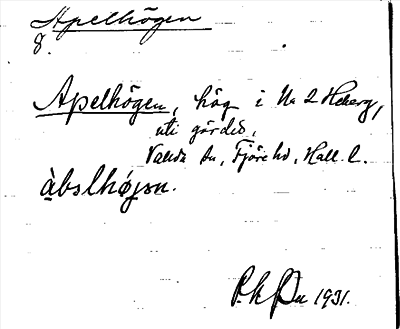 Apelhögen
8.
Apelhögen, hög i No 2 Heberg,
uti gärdet,
Valida sn, Fjäre hd, Hall. l.
àbslhøjsn.
1931.